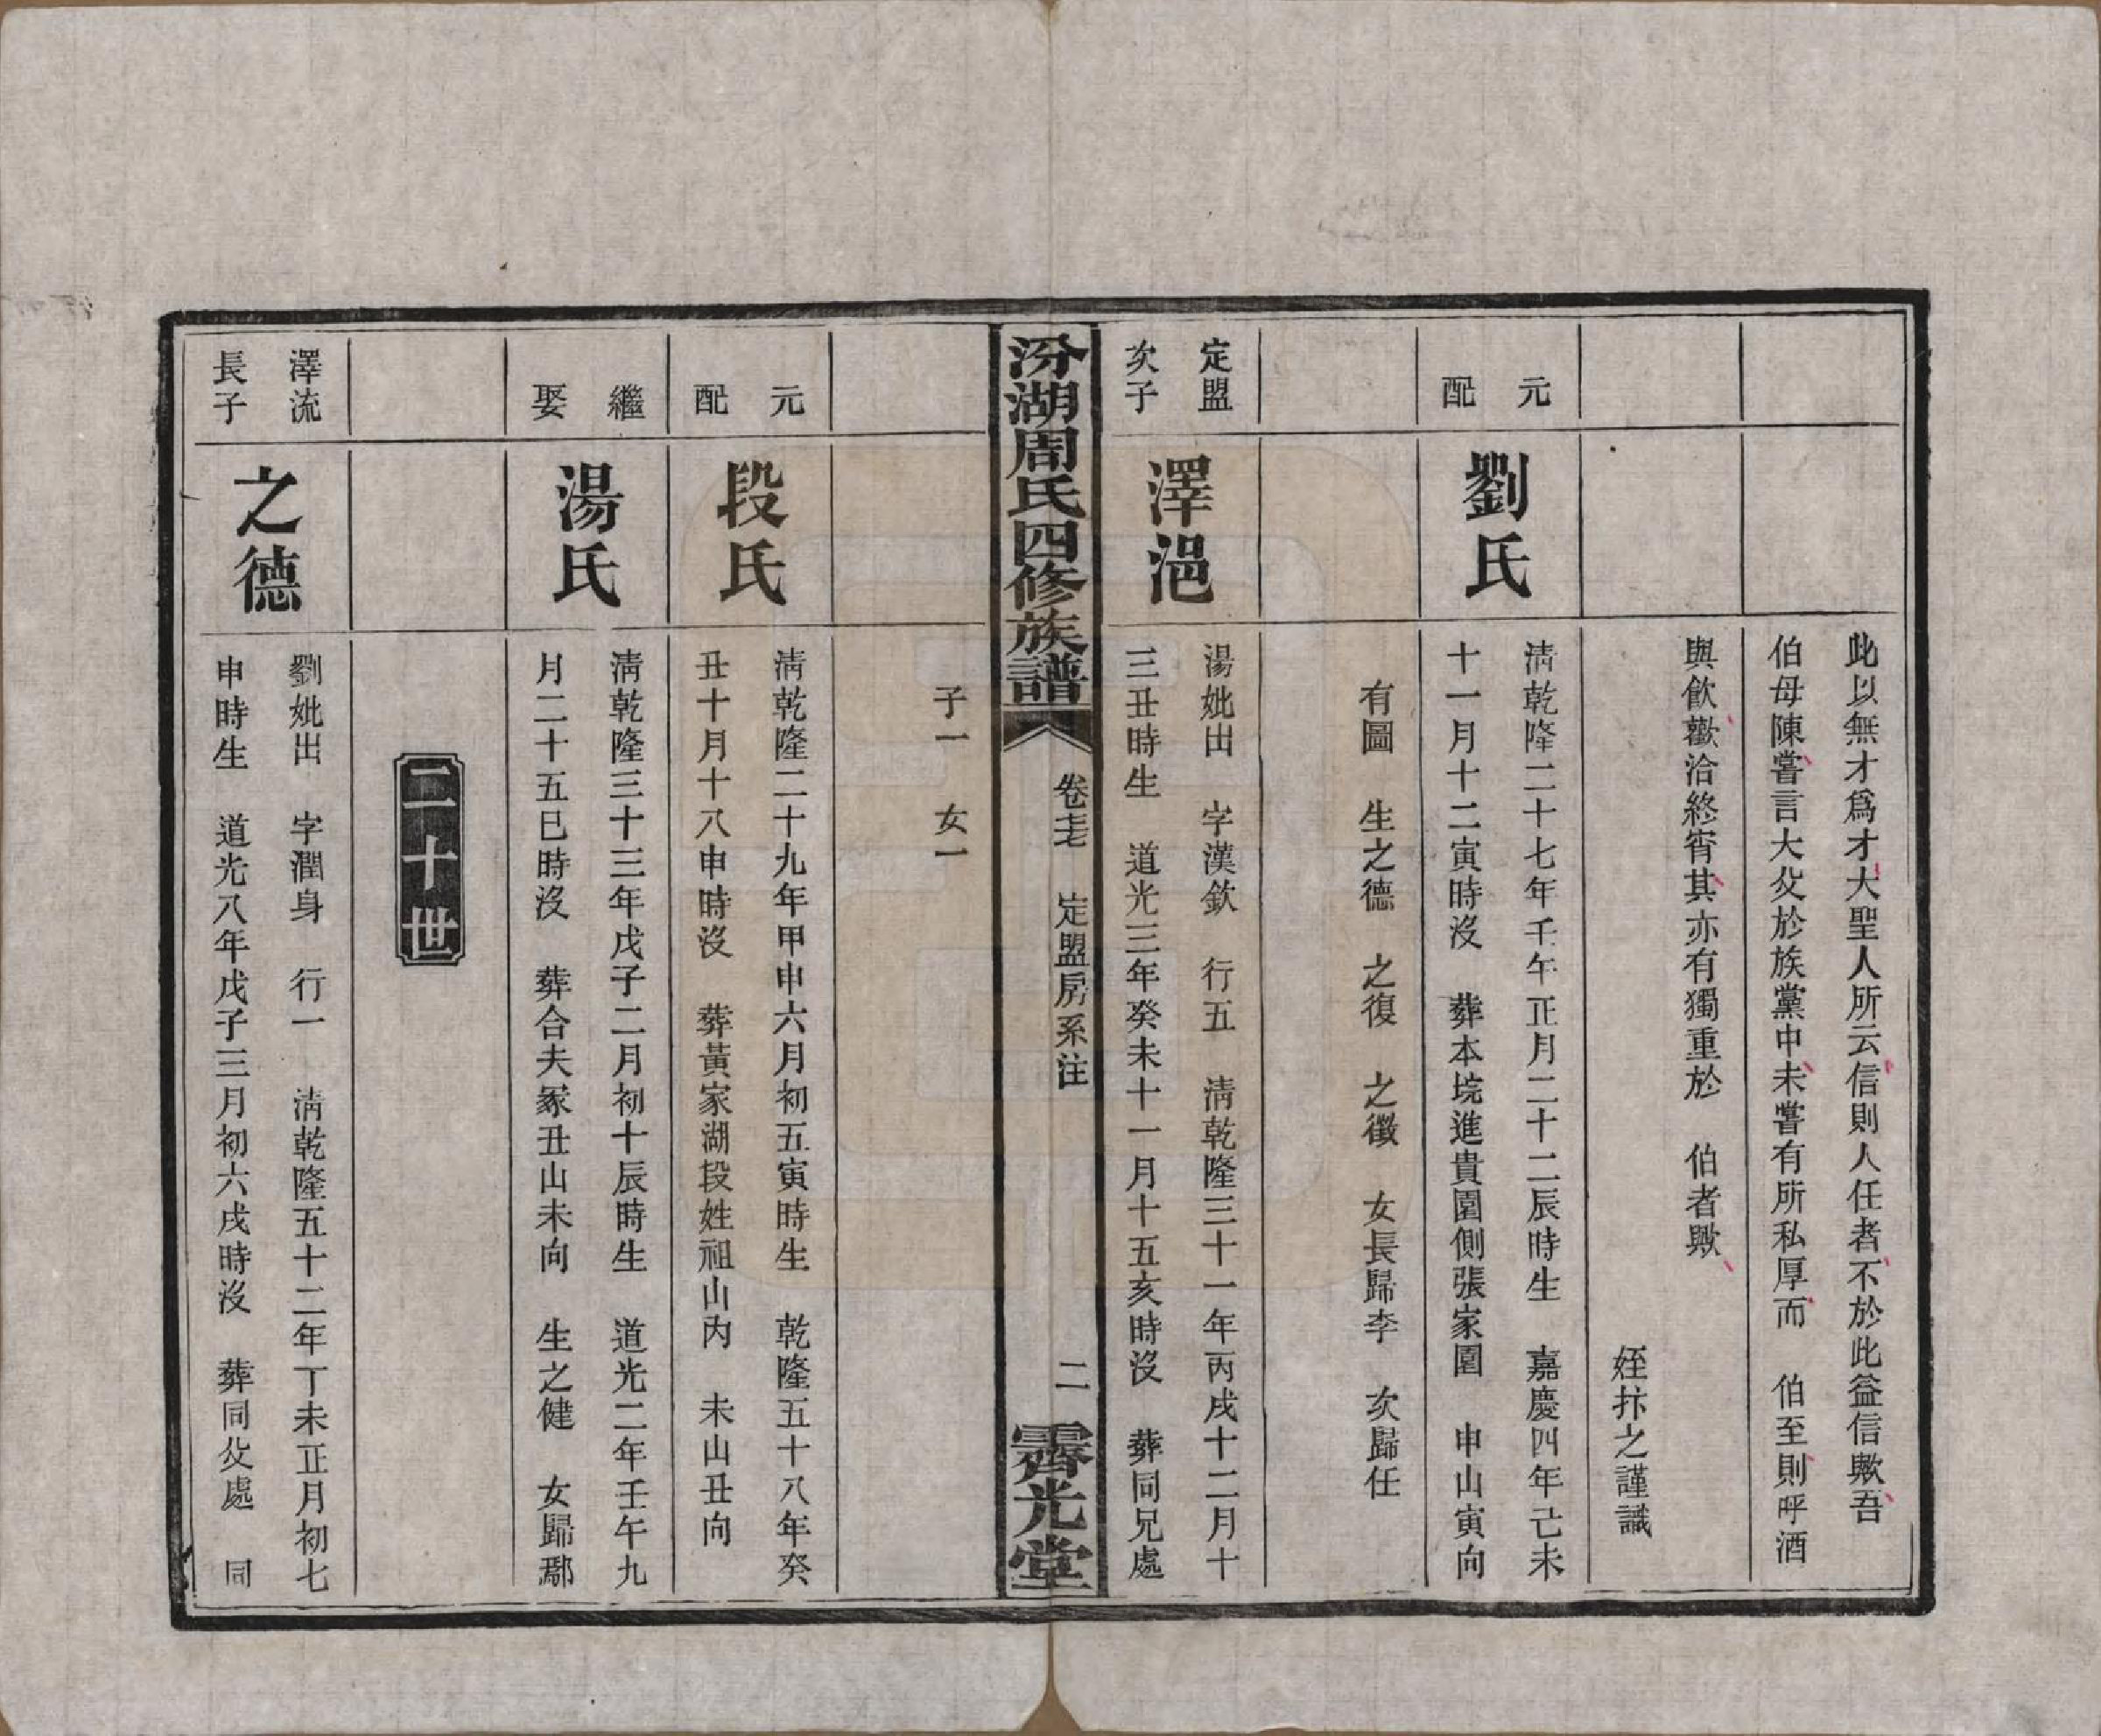 此以無才爲才大聖人所云信則人任者不於此益信歟吾
伯母陳嘗言大父於族黨中未嘗有所私厚而 伯至則呼酒
與飲歡洽終宵其亦有獨重於 伯者歟
姪抃之謹識
元配
劉氏
清乾隆二十七年壬午正月二十二辰時生 嘉慶四年己未
十一月十二寅時沒 葬本垸進貴園側張家園 申山寅向
有圖 生之德 之復 之徵 女長歸李 次歸任
定盟次子
澤浥
湯妣出 字漢欽 行五 清乾隆三十一年丙戌十二月十
三丑時生 道光三年癸未十一月十五亥時沒 葬同兄處
汾湖周氏四修族譜
定盟房系注
二
霽光堂
子一 女一
元配
段氏
清乾隆二十九年甲申六月初五寅時生 乾隆五十八年癸
丑十月十八申時沒 葬黃家湖段姓祖山內 未山丑向
繼娶
湯氏
清乾隆三十三年戊子二月初十辰時生 道光二年壬午九
月二十五巳時沒 葬合夫冢丑山未向 生之健 女歸鄢
二十世
澤流長子
之德
劉妣出 字潤身 行一 清乾隆五十二年丁未正月初七
申時生 道光八年戊子三月初六戌時沒 葬同父處 同